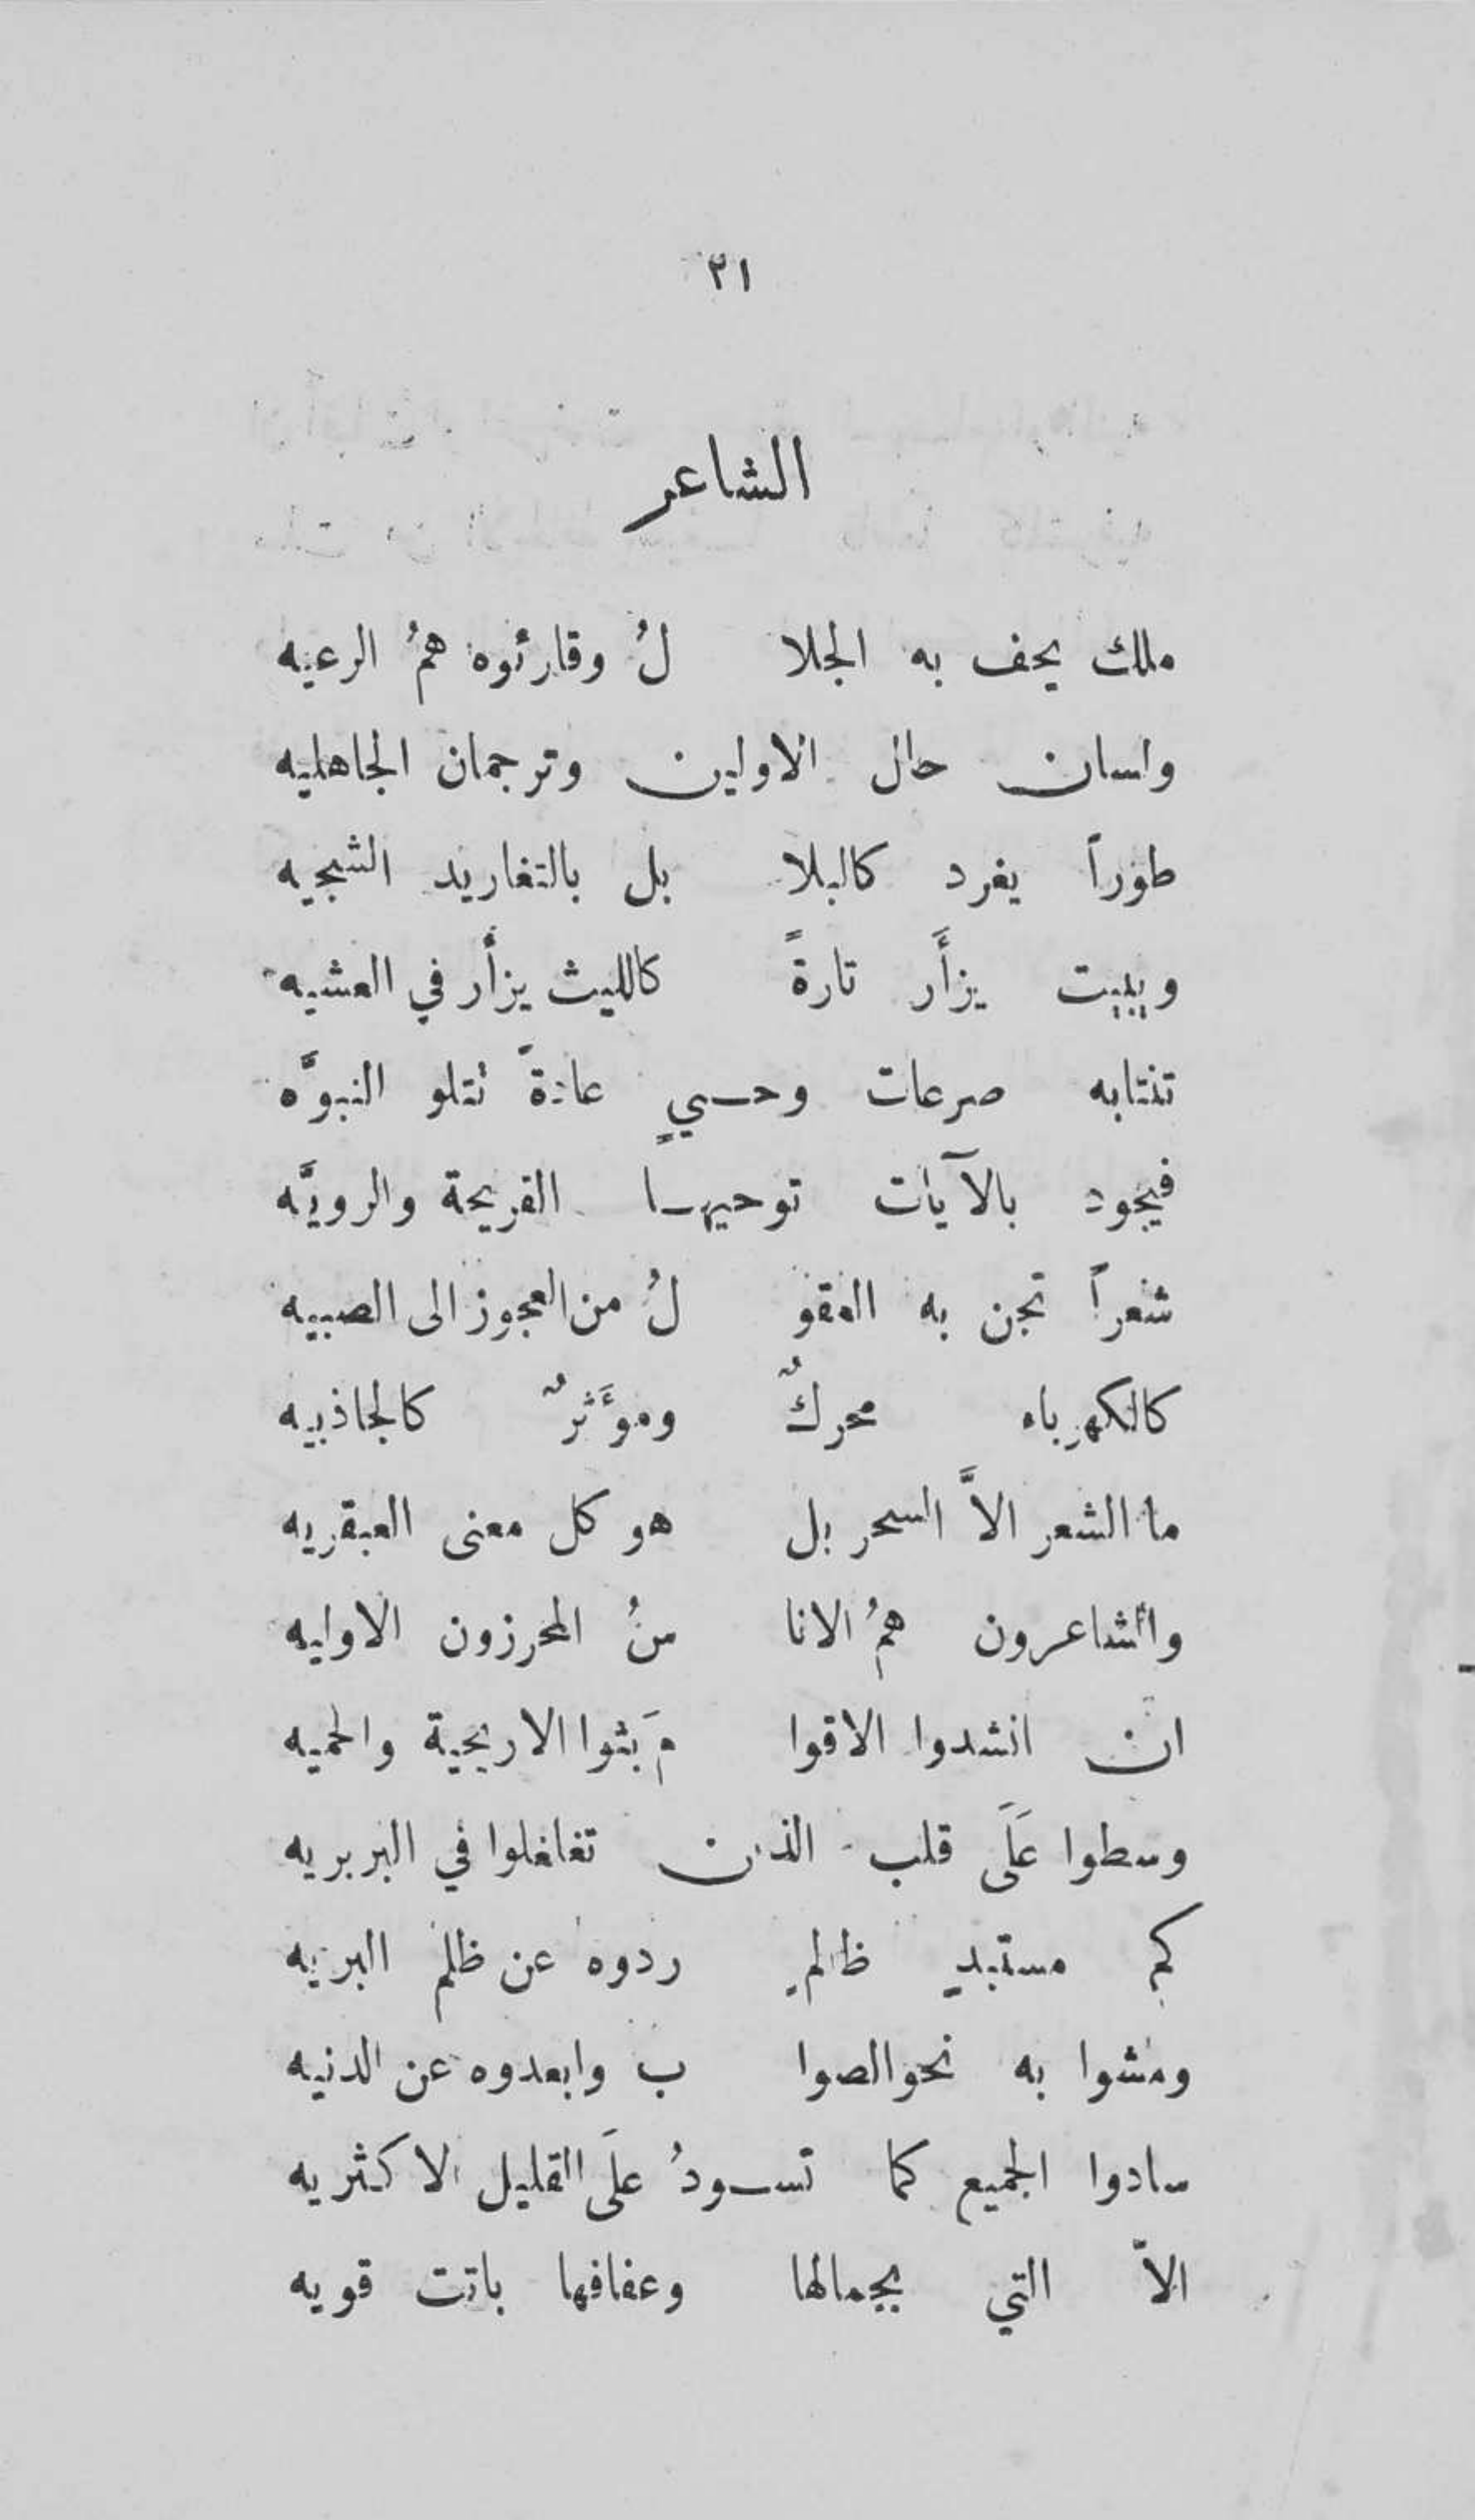 ٢١
الشاعر
ملك يحف به الجلا لُ وقارئوه همُ الرعيه
ولسان حال الاولين وترجمان الجاهليه
طوراً يغرد كالبلا بل بالتغاريد الشجيه
ويبيت يزأَر تارةً كالليث يزأَر في العشيه
تنتابه صرعات وحــيٍ عادةً تتلو النبوَّه
فيجود بالآيات توحيهــا القريحة والرويَّه
شعراً تجن به العقو لُ من العجوز الى الصبيه
كالكهرباء محركٌ وموَّثرٌ كالجاذبيه
ما الشعر الاَّ السحر بل هو كل معنى العبقريه
والشاعرون همُ الانا منُ المحرزون الاوليه
ان انشدوا الاقوا مَ بثوا الاريحية والحميه
وسطوا عَلَى قلب الذين تغلغلوا في البربريه
كم مستبدٍ ظالمٍ ردوه عن ظلم البريه
ومشوا به نحو الصوا ب وابعدوه عن الدنيه
سادوا الجميع كما تســودُ علَى القليل الاكثريه
الاّ التي بجمالها وعفافها باتت قويه